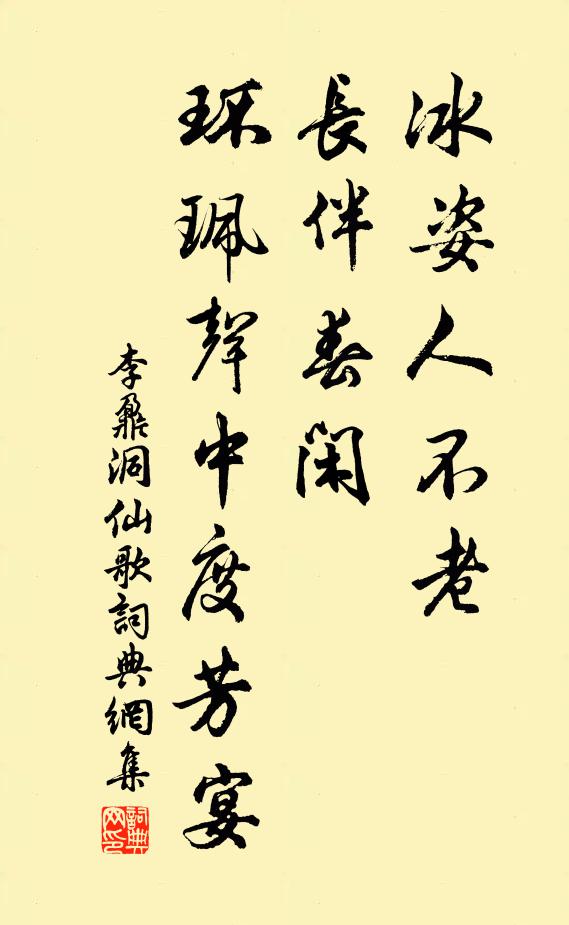 冰姿人不老
長伴春閑
環珮聲中度芳宴
李鼐洞仙歌詞典網集
詞典網印